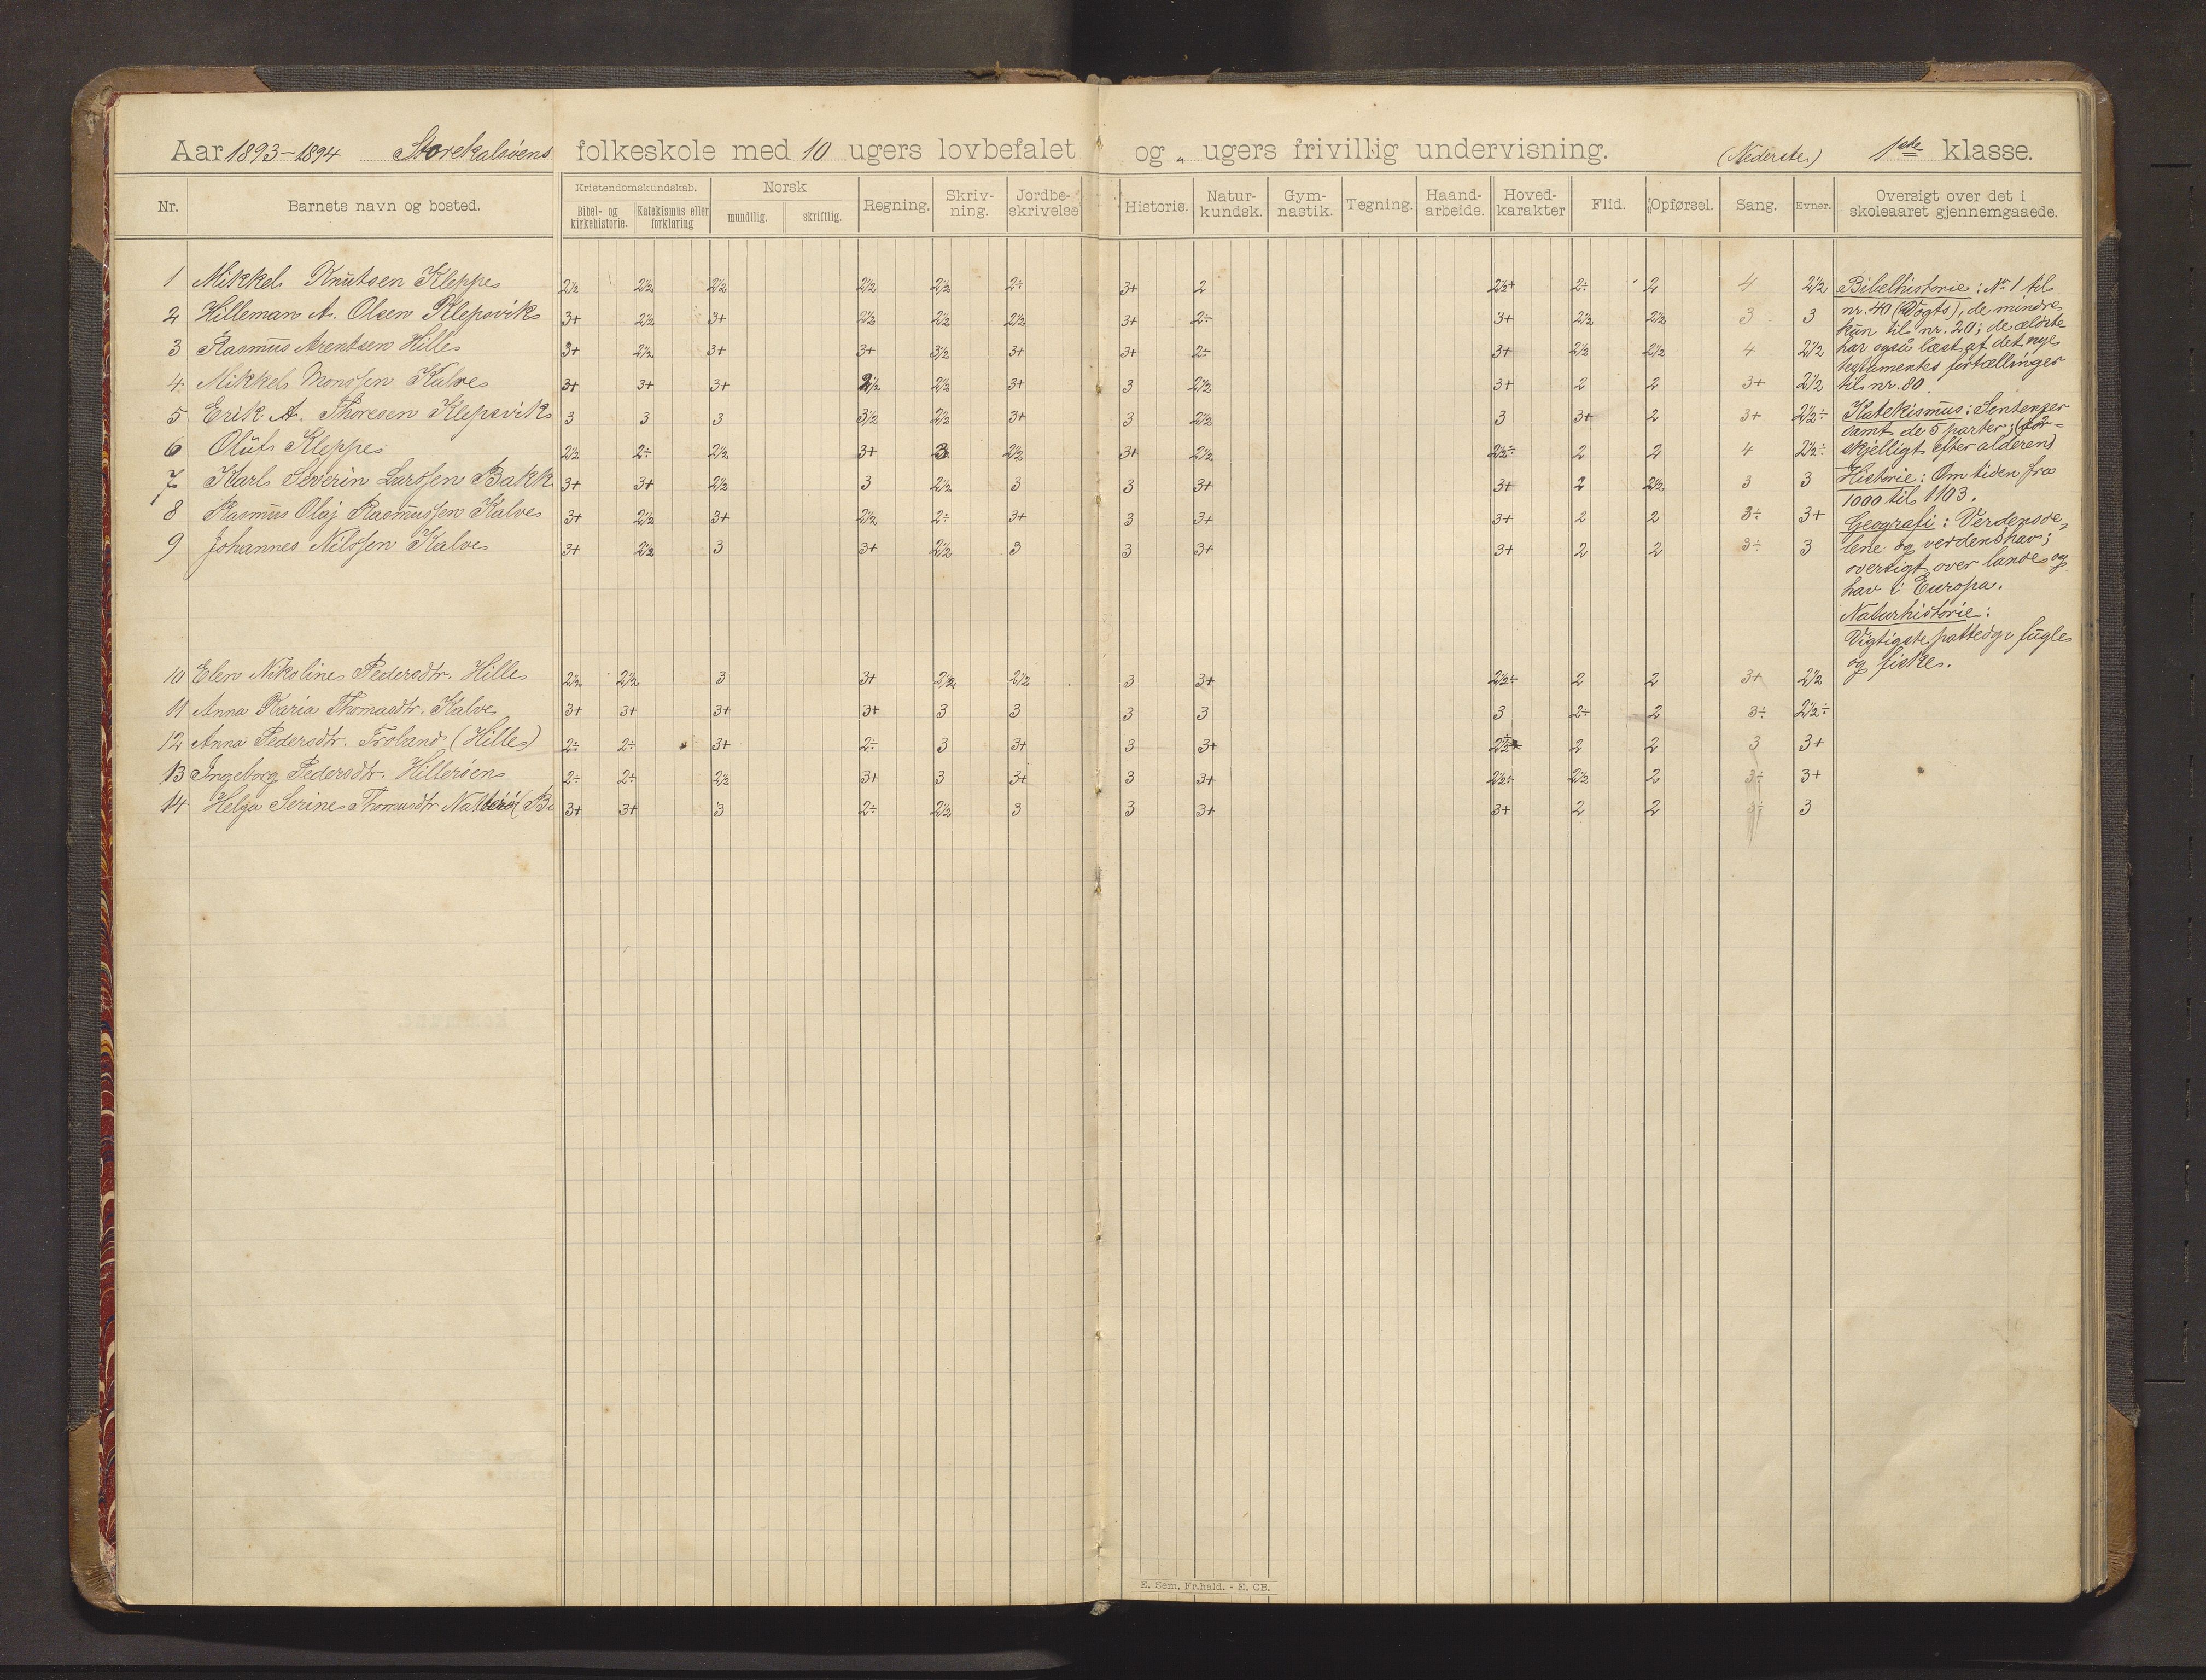 Aar 1893-1894 Storekalsøens folkeskole med 10 ugers lovbefalet og „ ugers frivillig undervisning. (Nederste) 1ste klasse.
Nr. Barnets navn og bosted. Kristendomskundskab. Bibel- og kirkehistorie. Katekismus eller forklaring Norsk mundtlig. skriftlig. Regning. Skriv-ning. Jordbe-skrivelse Historie. Natur-kundsk. Gym-nastik. Tegning. Haand-arbeide. Hoved-karakter Flid. Opførsel. Sang. Evner. Oversigt over det i skoleaaret gjennemgaaede.
1 Mikkel Knutsen Kleppe 2½ 2½ 2½ 2½ 2½ 2÷ 3+ 2 2½+ 2÷ 2 4 2½
2 Hilleman A. Olsen Klepsvik 3+ 2½ 3+ 2½ 2½ 2½ 3+ 2÷ 3+ 2½ 2½ 3 3
3 Rasmus Arentsen Hille 3+ 2½ 3+ 3+ 3½ 3+ 3+ 2÷ 3+ 2½ 2½ 4 2½
4 Mikkel Monssen Kalve 3+ 3+ 3+ 2½ 2½ 3+ 3 2½ 3+ 2 2 3+ 2½
5 Erik A. Thoresen Klepsvik 3 3 3 3½ 2½ 3+ 3 2½ 3 3+ 2 3+ 2½÷
6 Oluf Kleppe 2½ 2÷ 2½ 3+ 3 2½ 3+ 2½ 2½÷ 2 2 4 2½÷
7 Karl Severin Larssen Bakk 3+ 3+ 2½ 3 2½ 3 3 3+ 3+ 2 2½ 3 3
8 Rasmus Olaj Rasmussen Kalve 3+ 2½ 3+ 2½ 2÷ 3+ 3 3+ 3+ 2 2 3÷ 3+
9 Johannes Nilssen Kalve 3+ 2½ 3 3+ 2½ 3 3 3+ 3+ 2 2 3÷ 3
10 Elen Nikoline Pedersdtr. Hille 2½ 2½ 3 3+ 2½ 2½ 3 3+ 2½÷ 2 2 3+ 2½
11 Anna Karia Thomasdtr. Kalve 3+ 3+ 3+ 3+ 3 3 3 3 3 2÷ 2 3÷ 2½÷
12 Anna Pedersdtr. Troland (Hille) 2÷ 2÷ 3+ 2÷ 3 3+ 3 3+ 2½+ 2 2 3 3+
13 Ingeborg Pedersdtr. Hillerøen 2÷ 2÷ 2½ 3+ 3 3+ 3 3+ 2½÷ 2½ 2 3÷ 3+
14 Helga Serine Thomasdtr 3+ 3+ 3 2÷ 2½ 3 3 3+ 3+ 2 2 3÷ 3
Bibelhistorie: Nr 1 til
nr. 40 (Vogts), de mindre
kun til nr. 20; de ældste
har også læst af det nye
testamentes fortællinger
til nr. 80
Katekismus: Sentenser
samt de 5 parter; (for-
skjelligt efter alderen)
Historie: Om tiden fra
1000 til 1103.
Geografi: Verdensde-
lene og verdenshav;
oversigt over lande og
hav i Europa.
Naturhistorie:
Vigtigste pattedyr fugle
og fiske.
E. Sem, Fr.hald. - E. CB.